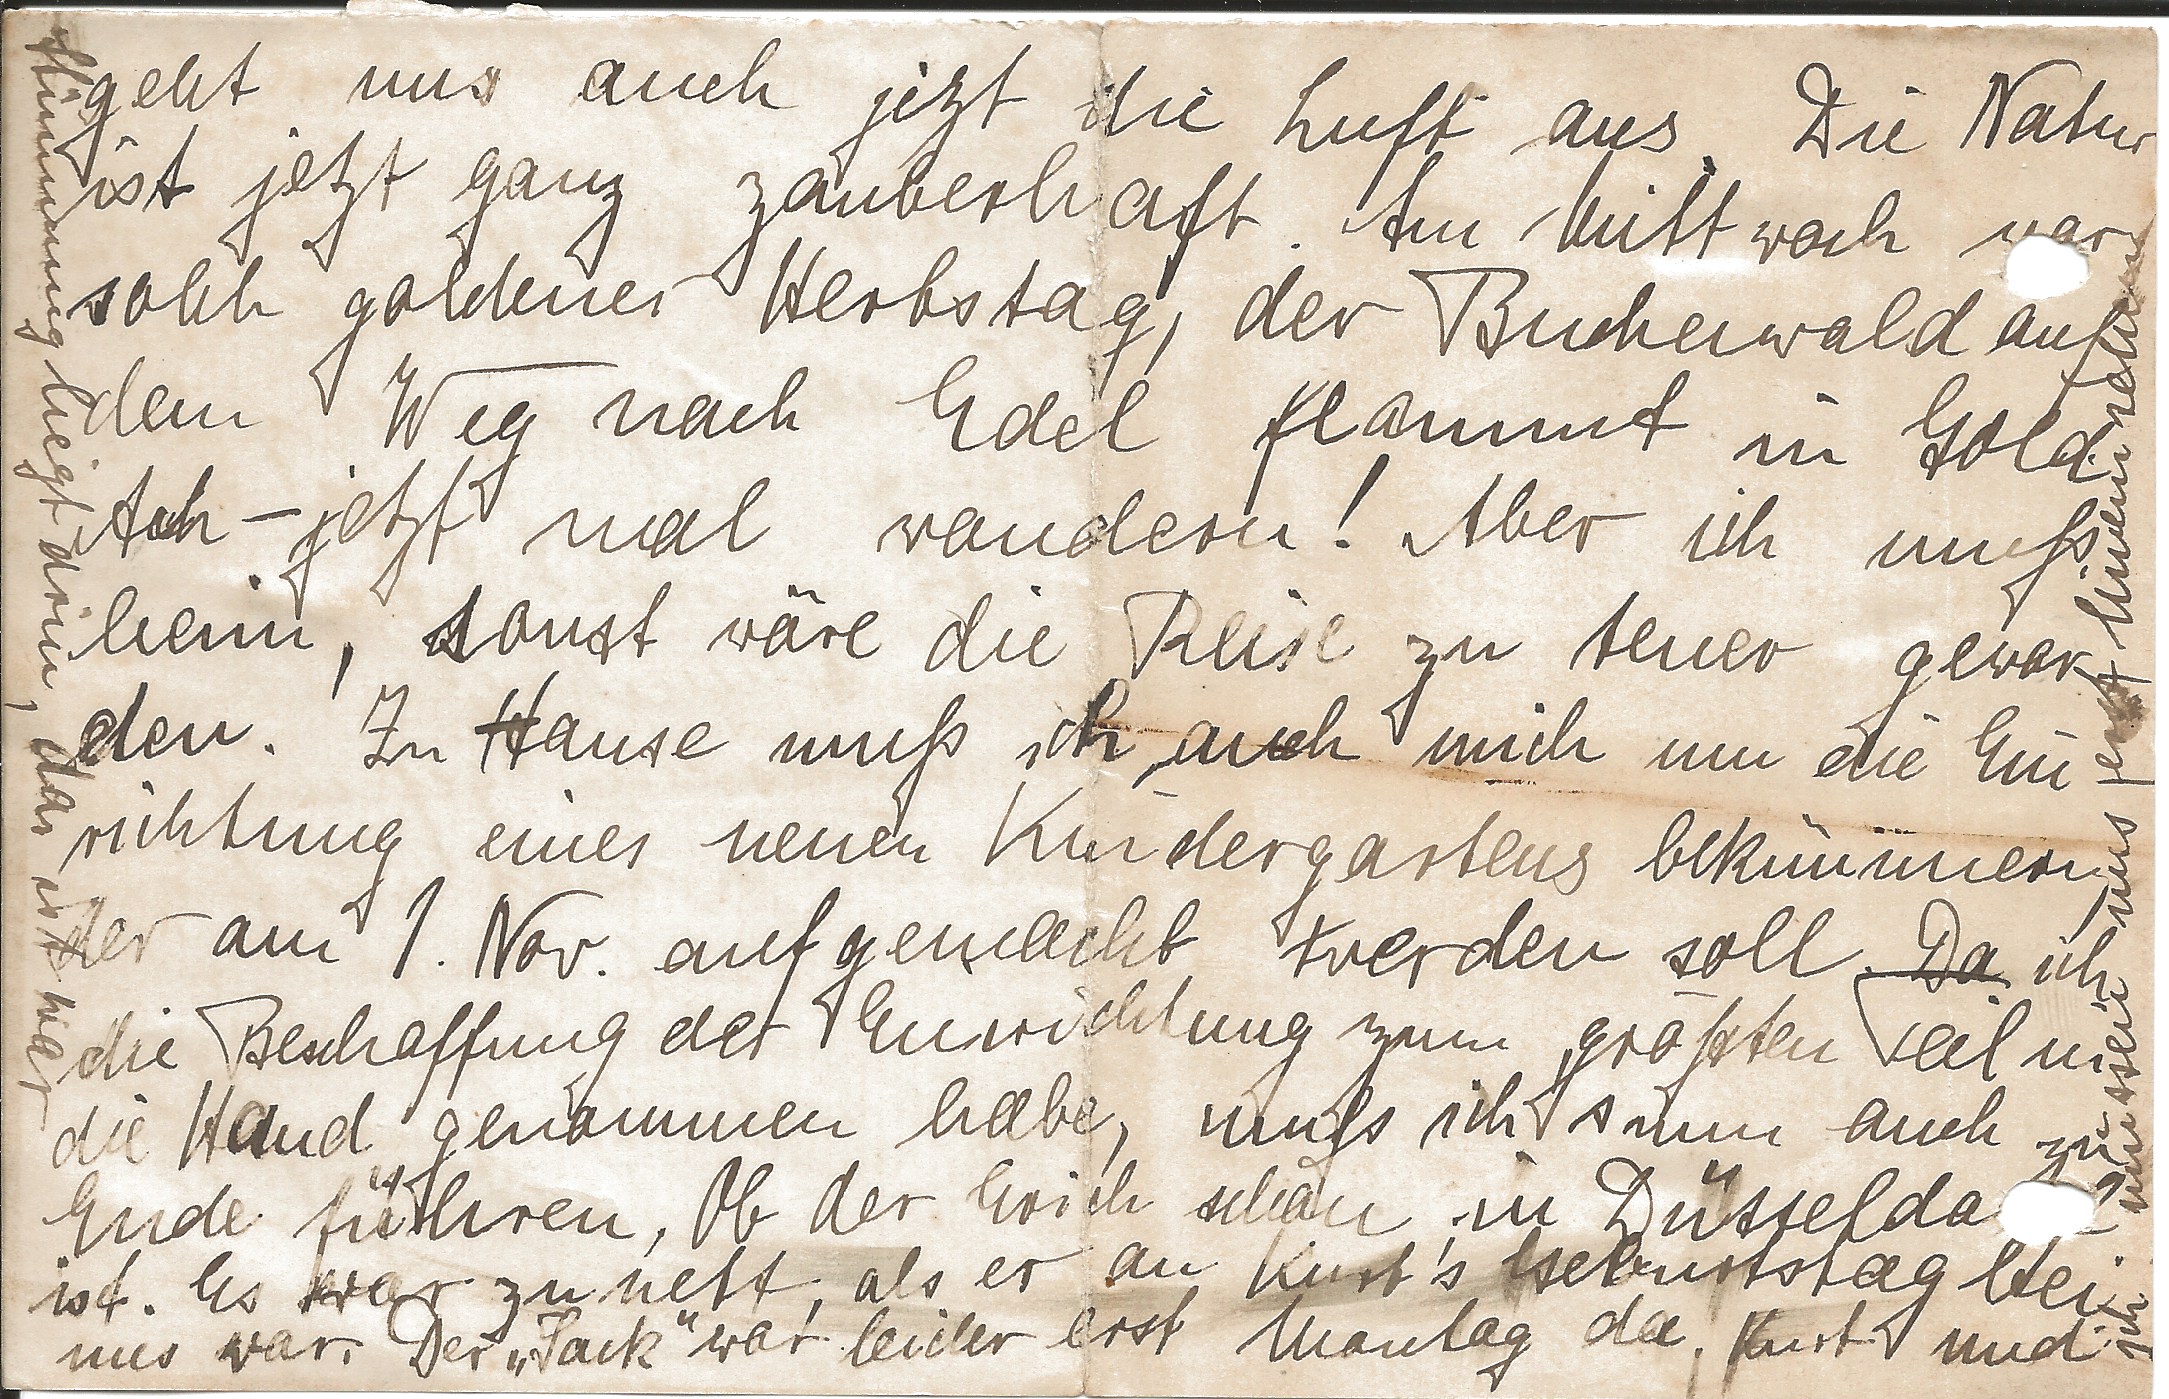 geht uns auch jetzt die Luft aus. Die Natur
ist jetzt ganz zauberhaft. Am Mittwoch war
solch goldener Herbstag, der Buchenwald auf
dem Weg nach Edel flammt in Gold.
Ach – jetzt mal wandern! Aber ich muß
heim, sonst wäre die Reise zu teuer gewor
den. Zu Hause muß ich auch mich um die Ein
richtung eines neuen Kindergartens bekümmern,
der am 1. Nov. aufgemacht werden soll. Da ich
die Beschaffung der Einrichtung zum größten Teil in
die Hand genommen habe, muß ich's nun auch zu
Ende führen, Ob der Erich schon in Düsseldorf
ist. Es war zu nett, als er an Kurt's Geburtstag bei
uns war. Der „Jack“ war leider erst Montag da, Kurt und
ich müssen uns erst
Stimmung liegt drin, das ist wahr